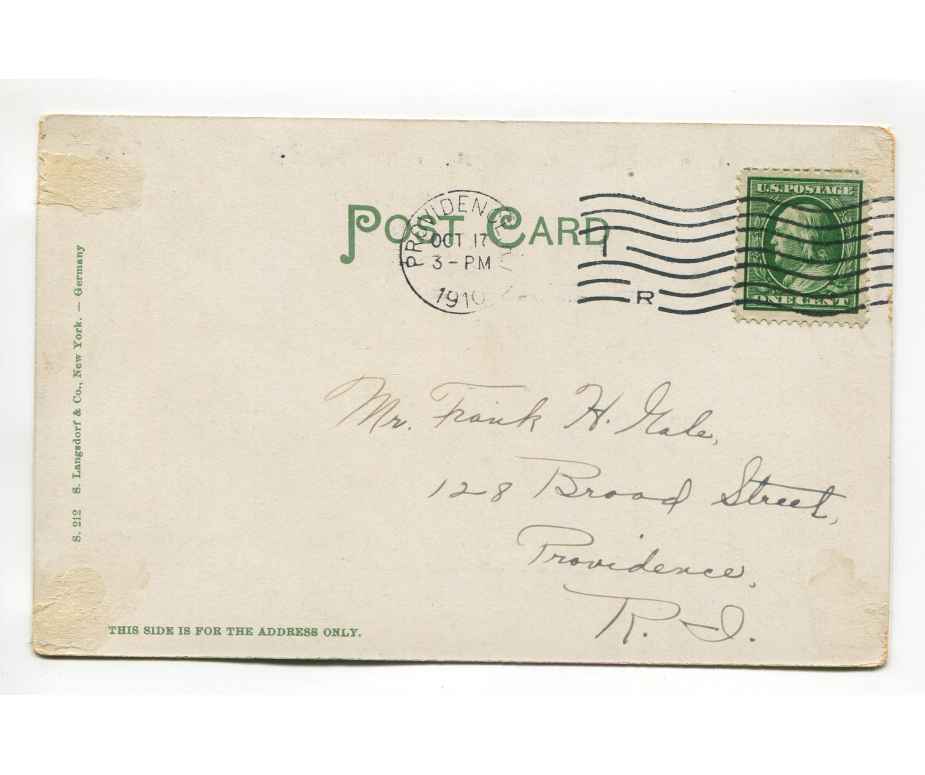 POST CARD
PROVIDENCE
OCT 17
3 - PM
1910
R
U.S. POSTAGE
ONE CENT
Mr. Frank H. Gale,
128 Broad Street,
Providence,
R. I.
S. 212 S. Langsdorf & Co., New York. — Germany
THIS SIDE IS FOR THE ADDRESS ONLY.